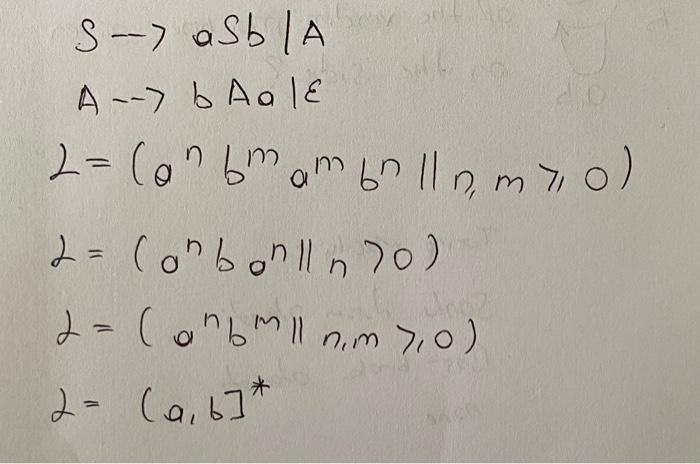 S --> aSb | A
A --> bAa | ε
L = (a^n b^m a^m b^n || n, m ⩾ 0)
L = (a^n b a^n || n > 0)
L = (a^n b^m || n, m ⩾ 0)
L = (a, b]*